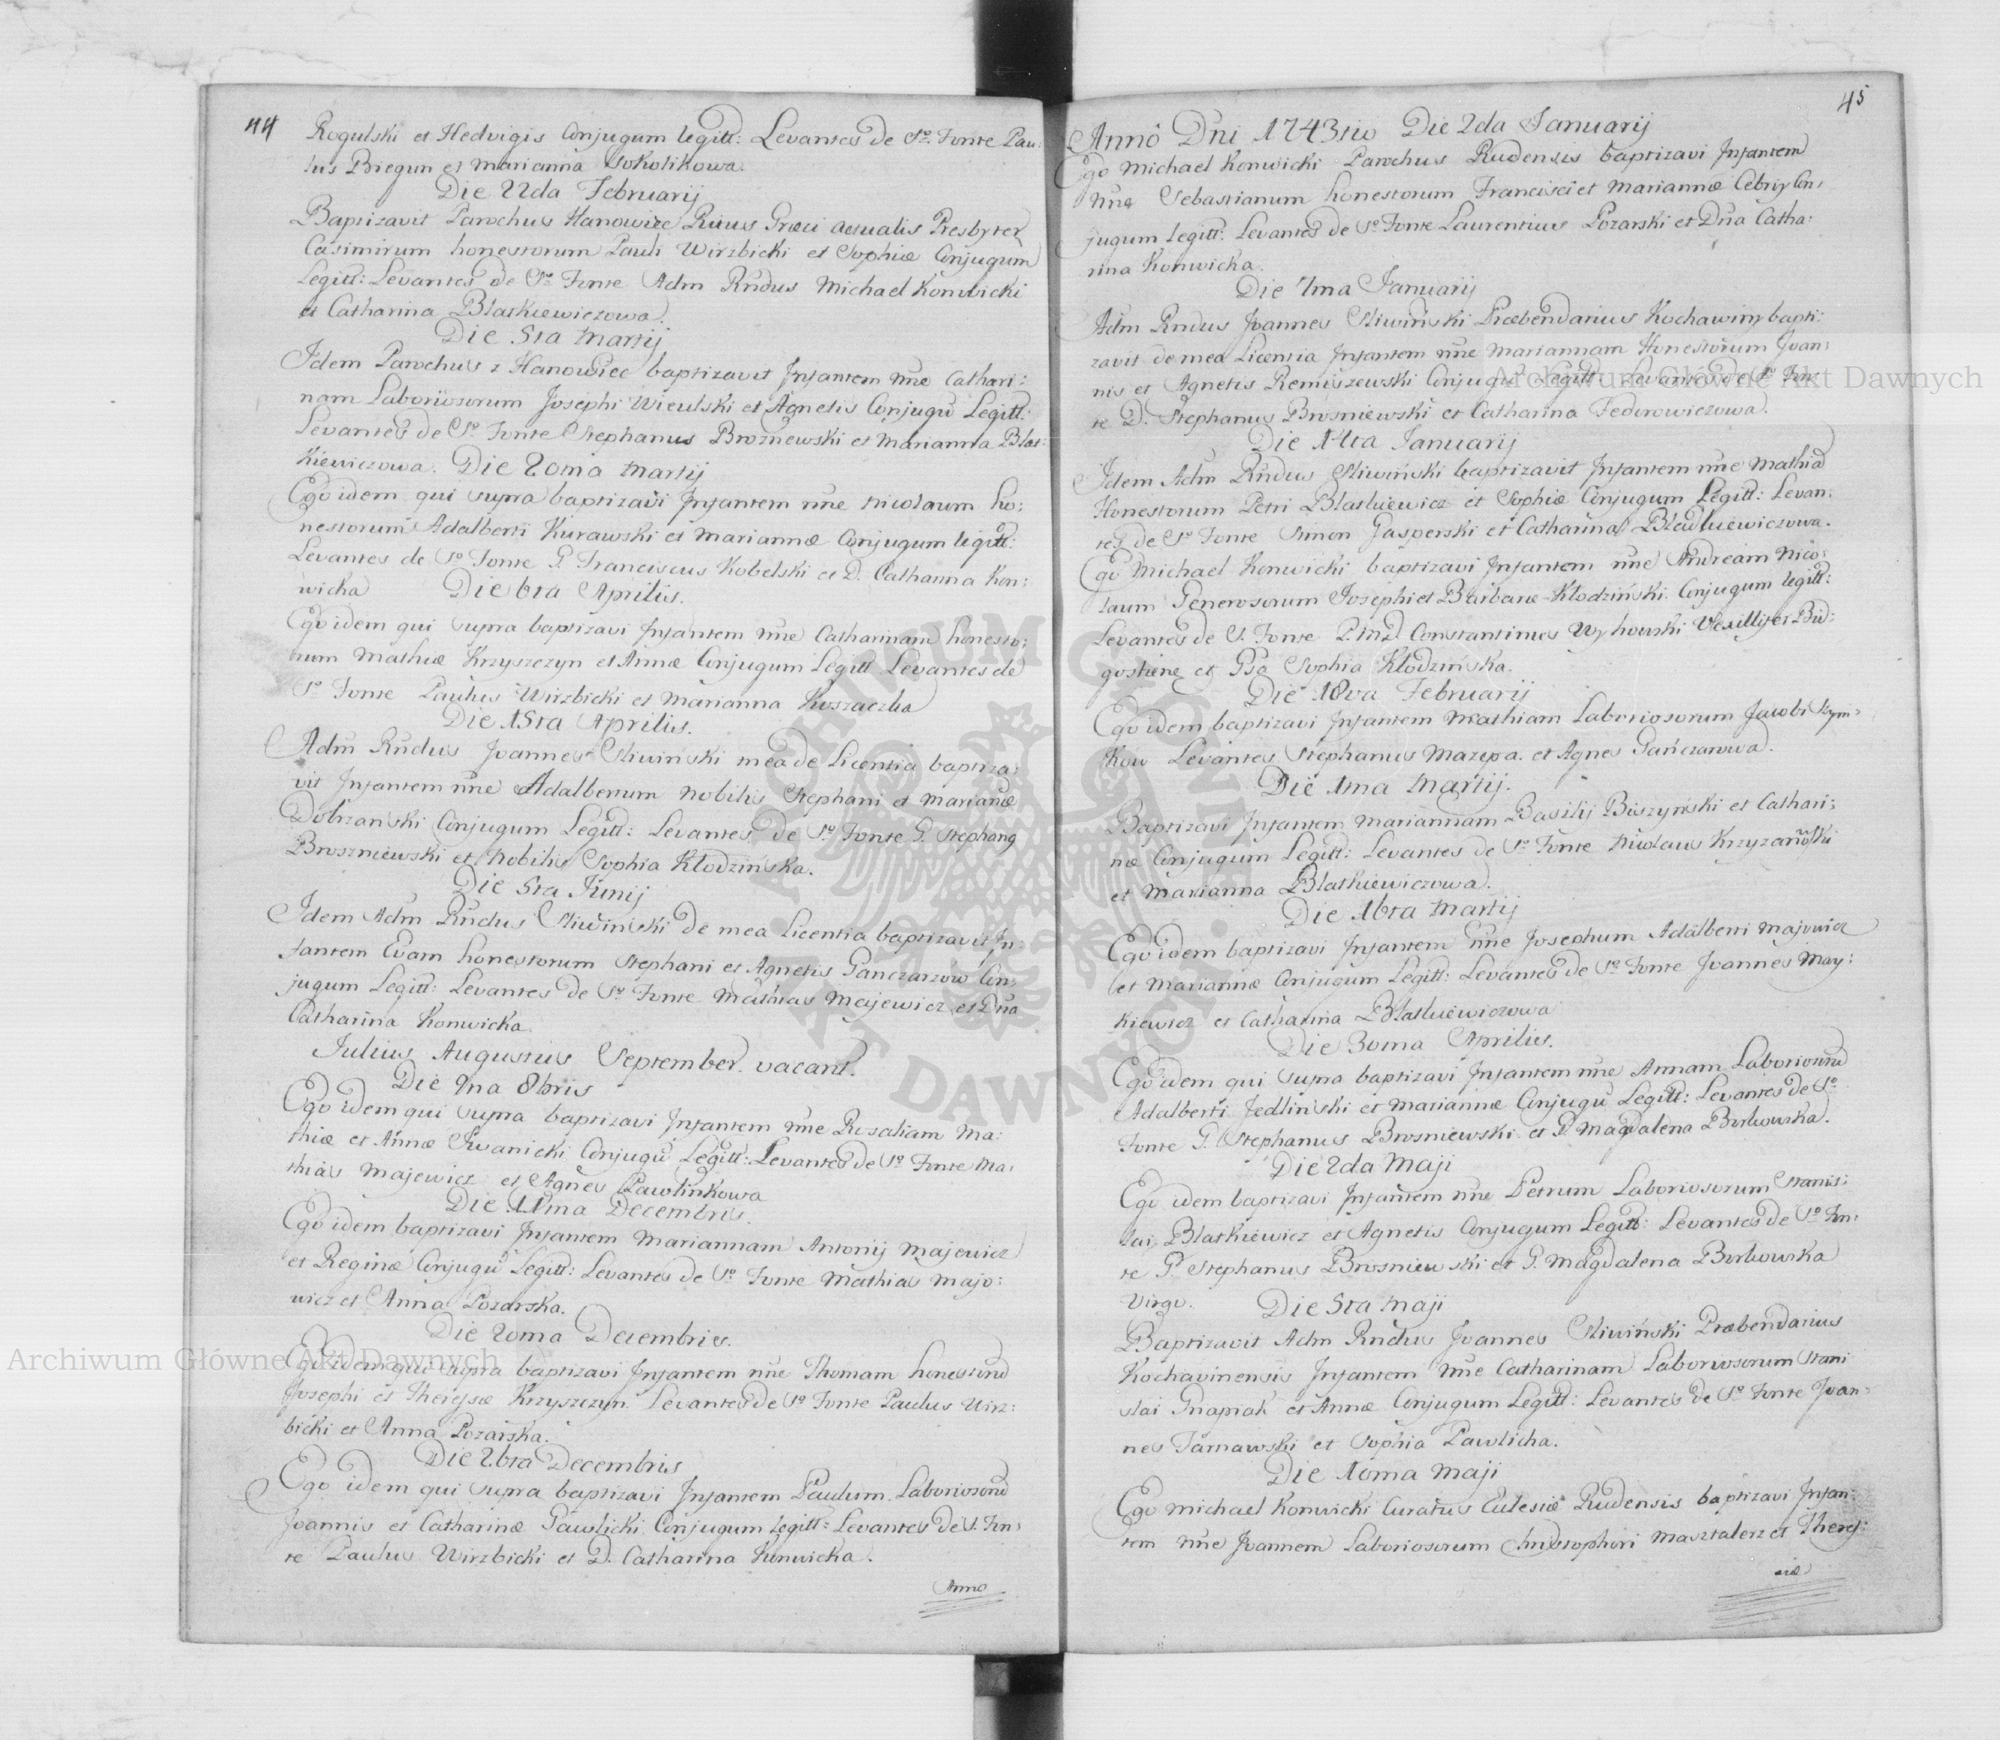 44
Rogulski et Hedvigis Conjugum legitt: Levantes de So. Fonte Pau:
lus Biegun et Marianna Sokolikowa.
Die 22da Februarij
Baptizavit Parochus Hanowiec Ritus Græci actualis Presbyter
Casimirum honestorum Pauli Wirzbicki et Sophiæ Conjugum
Legitt: Levantes de So. Fonte Adm Rndus Michael Konwicki
et Catharina Blaskiewiczowa.
Die 5ta Martij
Idem Parochus z Hanowiec baptizavit Infantem nne Cathari:
nam Laboriosorum Josephi Wieulski et Agnetis Conjugũ Legitt:
Levantes de So. Fonte Stephanus Brozniewski et Marianna Blas:
kiewiczowa. Die 20ma Martij
Ego idem qui supra baptizavi Infantem nne Nicolaum ho:
nestorum Adalberti Kurawski et Mariannæ Conjugum legitt:
Levantes de So. Fonte G. Franciscus Kobelski et D. Catharina Kon:
wicka Die 6ta Aprilis.
Ego idem qui supra baptizavi Infantem nne Catharinam honesto:
rum Mathiæ Krzyszczyn et Annæ Conjugum Legitt Levantes de
So. Fonte Paulus Wirzbicki et Marianna
Die 15ta Aprilis.
Adm Rndus Joannes Sliwiński mea de Licentia baptiza:
vit Infantem nne Adalbertum Nobilis Stephani et Mariannæ
Dobrzański Conjugum Legitt: Levantes de So. Fonte G. Stephanus
Broszniewski et Nobilis Sophia Kłodzińska.
Die 5ta Junij
Idem Adm Rndus Sliwiński de mea Licentia baptizavit In:
fantem Evam honestorum Stephani et Agnetis Ganczarzow Con:
jugum Legitt: Levantes de So. Fonte Mathias Majewicz et Dna
Catharina Konwicka
Julius Augustus September vacant.
Die 9na 8bris
Ego idem qui supra baptizavi Infantem nne Rosaliam Ma:
thiæ et Annæ Iwanicki Conjugũ Legitt: Levantes de So. Fonte Ma:
thias Majewicz et Agnes Pawlinkowa
Die 11ma Decembris.
Ego idem baptizavi Infantem Mariannam Antonij Majewicz
et Reginæ Conjugũ Legitt: Levantes de So. Fonte Mathias Majo:
wicz et Anna Pozarska.
Die 20ma Decembris.
Ego idem qui supra baptizavi Infantem nne Thomam honestorũ
Josephi et Theresiæ Krzyszczyn Levantes de So. Fonte Paulus Wirz:
bicki et Anna Pozarska.
Die 26ta Decembris
Ego idem qui supra baptizavi Infantem Paulum Laboriosorũ
Joannis et Catharinæ Pawlicki Conjugum legitt: Levantes de S. Fon:
te Paulus Wirzbicki et D. Catharina Konwicka.
Anno
45
Annô Dni 1743tio Die 2da Januarij
Ego Michael Konwicki Parochus Rudensis baptizavi Infantem
nne Sebastianum honestorum Francisci et Mariannæ Cebrzy Con:
jugum legitt: Levantes de So. Fonte Laurentius Pozarski et Dna Catha:
rina Konwicka.
Die 7ma Januarij
Adm Rndus Joannes Sliwiński Præbendarius Kochawiny bapti:
zavit de mea Licentia Infantem nne Mariannam Honestorum Joan:
nis et Agnetis Remiszewski Conjugũ Legitt: Levantes de So. Fon:
te D. Stephanus Brosniewski et Catharina Federowiczowa.
Die 14ta Januarij
Idem Adm Rndus Sliwiński baptizavit Infantem nne Mathiã
Honestorum Petri Blaskiewicz et Sophiæ Conjugum Legitt: Levan:
tes de So. Fonte Simon Gasperski et Catharina Blaskiewiczowa.
Ego Michael Konwicki baptizavi Infantem nne Andream Nico:
laum Generosorum Josephi et Barbaræ Kłodziński Conjugum legitt:
Levantes de S. Fonte Constantinus Wyhowski Vexillifer Bid:
gostiene et Gsa Sophia Kłodzińska.
Die 18va Februarij
Ego idem baptizavi Infantem Mathiam Laboriosorum Jacobi Szym:
kow Levantes Stephanus Mazepa. et Agnes Gańczarowa.
Die 1ma Martij.
Baptizavi Infantem Mariannam Basilij Buszyński et Cathari:
næ Conjugum Legitt: Levantes de So. Fonte Nicolaus Krzyzanoski
et Marianna Blaskiewiczowa.
Die 16ta Martij
Ego idem baptizavi Infantem nne Josephum Adalberti Majowicz
et Mariannæ Conjugum Legitt: Levantes de So. Fonte Joannes May:
kiewicz et Catharina Blaskiewiczowa
Die 30ma Aprilis.
Ego idem qui supra baptizavi Infantem nne Annam Laboriosorũ
Adalberti Jedliński et Mariannæ Conjugũ Legitt: Levantes de So
Fonte G. Stephanus Brosniewski et G. Magdalena Borkowska.
Die 2da Maji
Ego idem baptizavi Infantem nne Petrum Laboriosorum Stanis:
lai Blaskiewicz et Agnetis Conjugum Legitt: Levantes de So. Fon:
te G. Stephanus Brosniewski et G. Magdalena Borkowska
Virgo. Die 5ta Maji
Baptizavit Adm Rndus Joannes Sliwiński Præbendarius
Kochavinensis Infantem nne Catharinam Laboriosorum Stani
slai Gnapiak et Annæ Conjugum Legitt: Levantes de So. Fonte Joan:
nes Tarnawski et Sophia Pawlicha.
Die 10ma Maji
Ego Michael Konwicki Curatus Eclesiæ Rudensis baptizavi Infan:
tem nne Joannem Laboriosorum Christophori Masztalerz et Theres:
siæ
Archiwum Główne Akt Dawnych
Archiwum Główne Akt Dawnych
ARCHIWUM GŁÓWNE AKT DAWNYCH